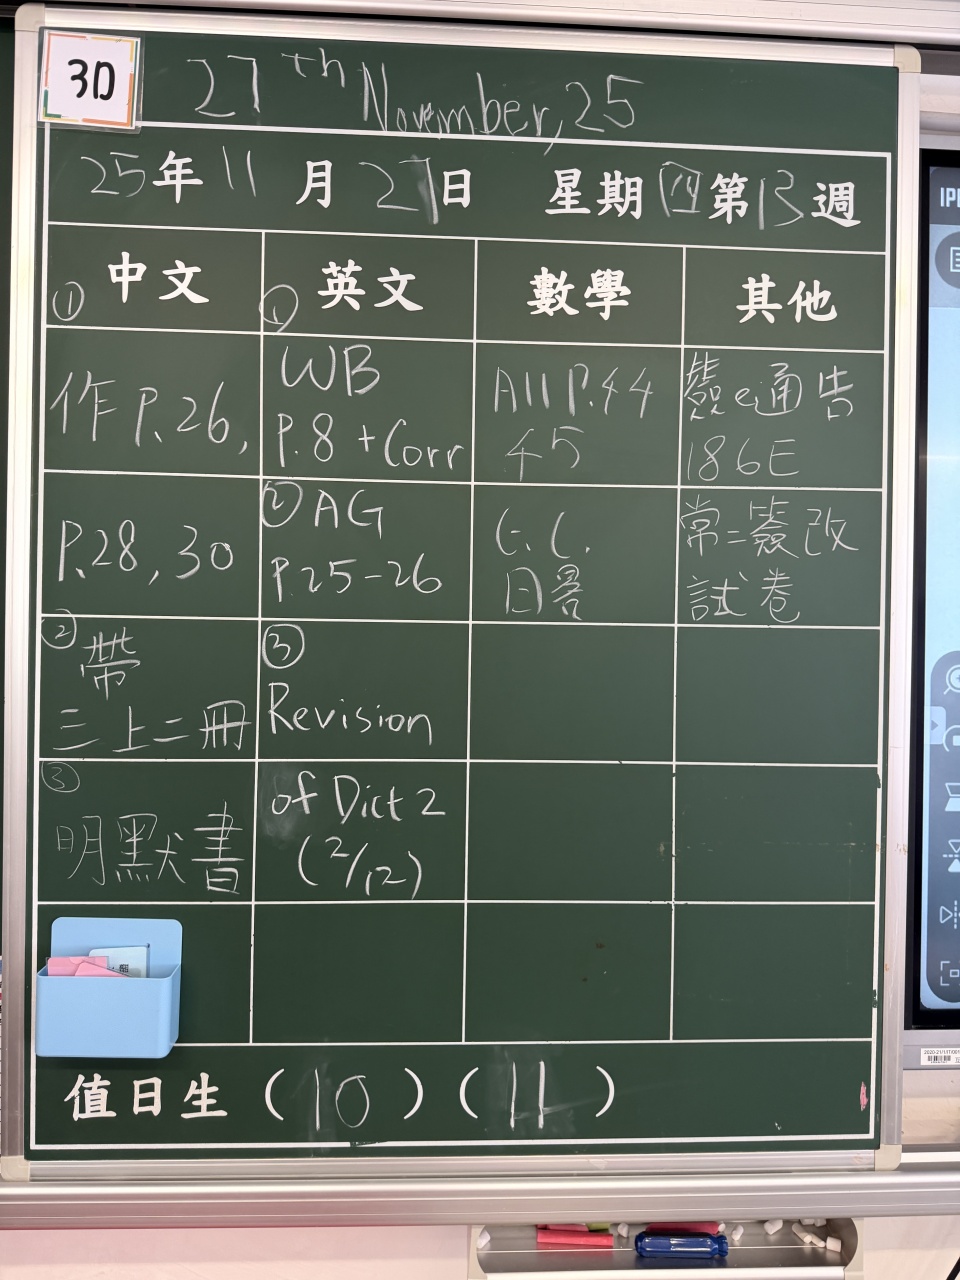 3D
27th November, 25
25年11月27日 星期四第13週
中文
①
作 P.26,
P.28, 30
②
帶
三上二冊
③
明默書
英文
①
WB
P.8 + Corr
② AG
P.25-26
③
Revision
of Dict 2
(2/12)
數學
A11 P.44
45
C.C.
其他
簽e通告
186E
常二簽改
試卷
值日生 (10) (11)
IP
2020-21/IT/001